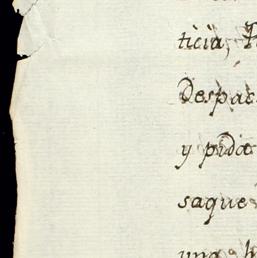 ticia,
Despac
y pida
saque
una